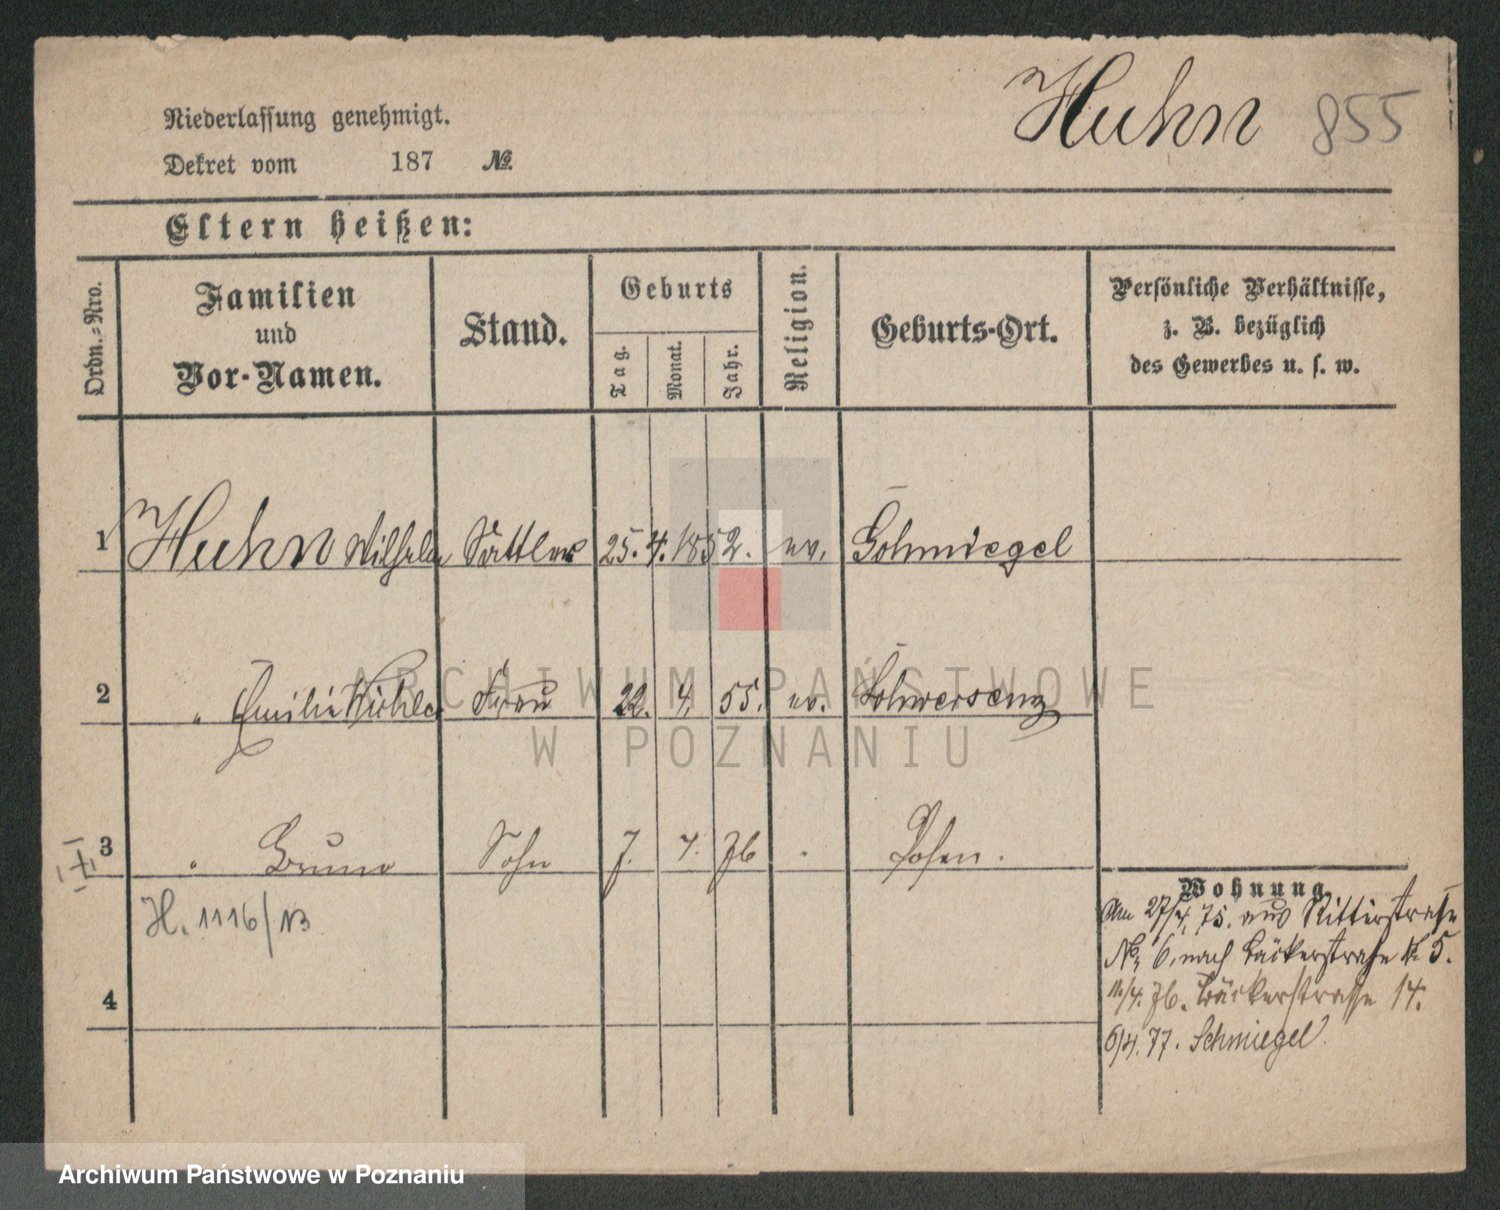 Huhn 855
Niederlassung genehmigt.
Dekret vom 187 №
Eltern heißen:
Ordn.-Nro.
Familien
und
Vor-Namen.
Stand.
Geburts
Tag.
Monat.
Jahr.
Religion.
Geburts-Ort.
Persönliche Verhältnisse,
z. B. bezüglich
des Gewerbes u. s. w.
1 Huhn Wilhelm Sattler 25. 4. 1852. ev. Schmiegel
2 " Emilie Frau 22. 4. 55. ev. Schwersenz
3 " Bruno Sohn 7. 7. 76 Posen.
H. 1116/
4
Wohnung.
Am 27/4. 75. aus Ritterstraße
No 6, nach Bäckerstraße № 5.
76. Bäckerstraße 14.
77. Schmiegel.
ARCHIWUM PAŃSTWOWE
W POZNANIU
Archiwum Państwowe w Poznaniu